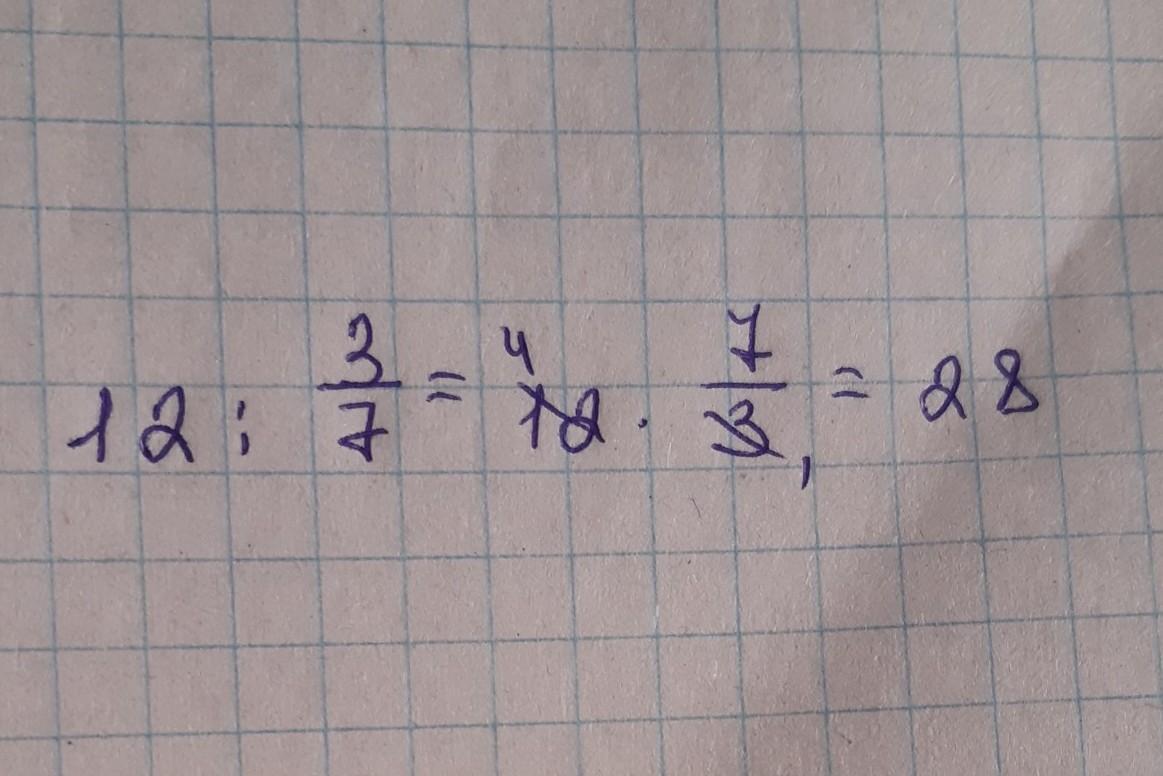 12 : 3/7 = ⁴12 · 7/3₁ = 28